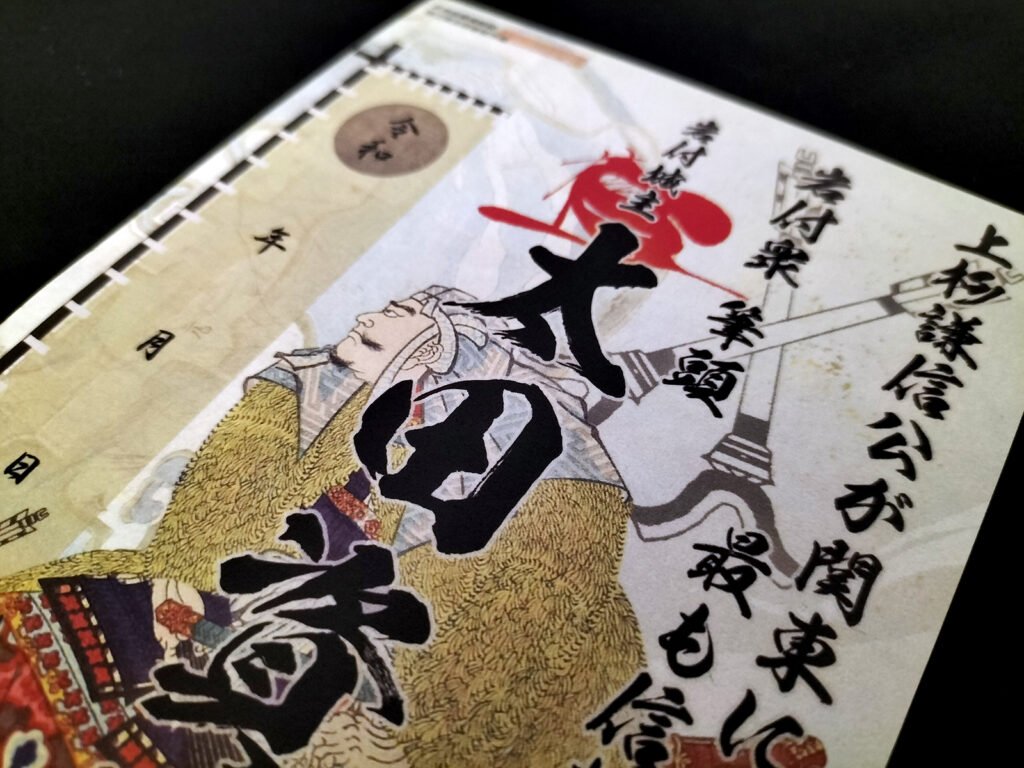 上杉謙信公が関東に
最も信
岩付衆 筆頭
岩付城主
太田資
令和
年 月 日